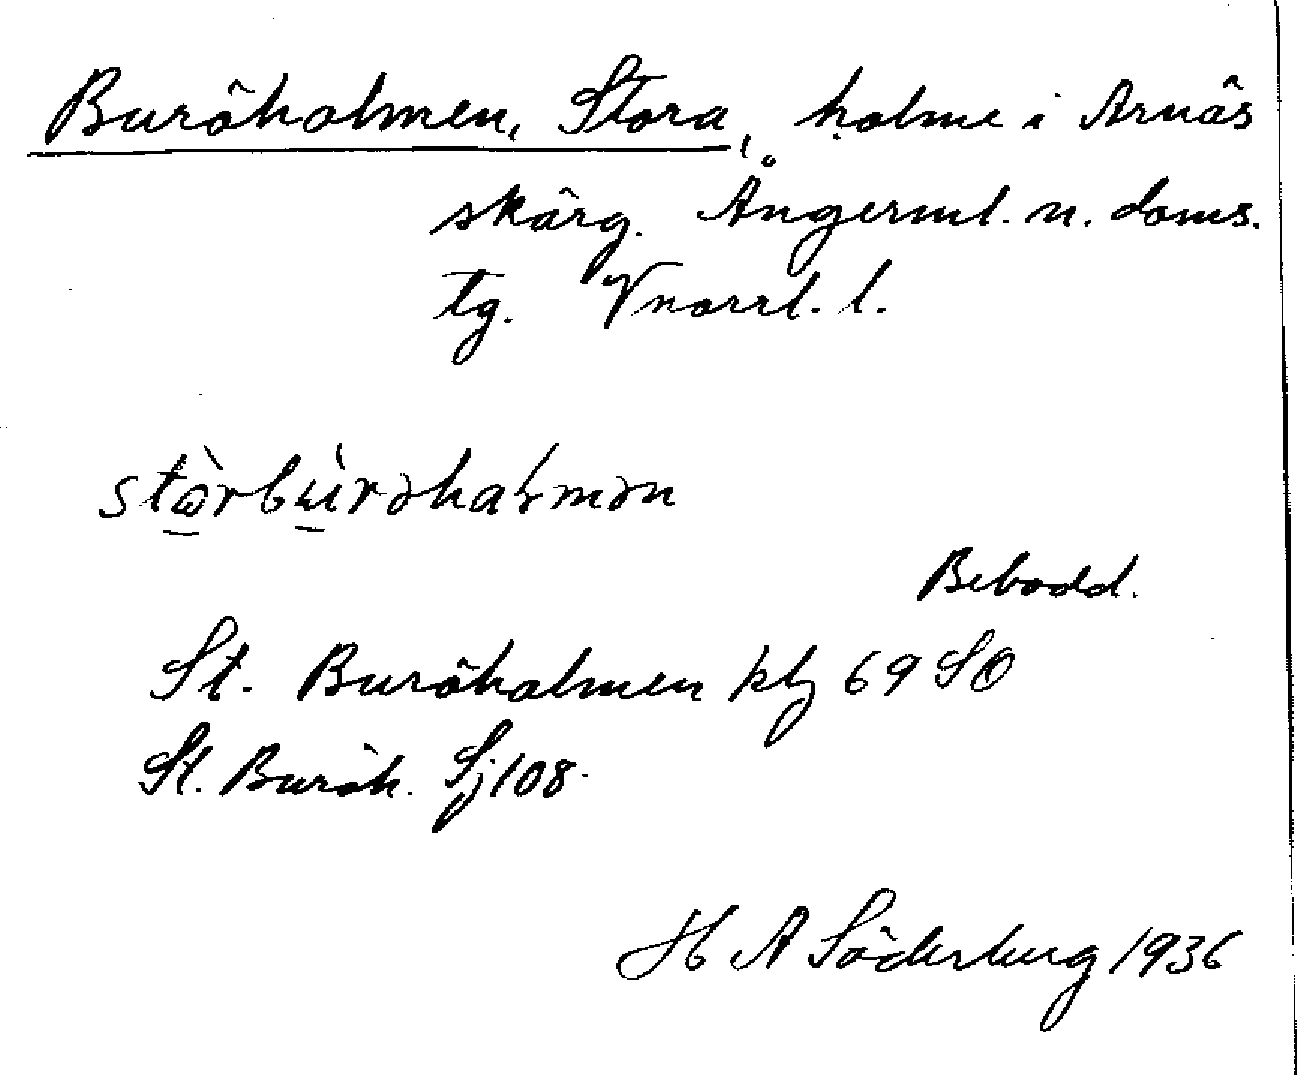 Buröholmen, Stora, holme i Arnäs
skärg. Ångerml. n. doms.
tg. Vnorrl. l.
stɷ̀rbùrəhaɫmən
Bebodd.
St. Buröholmen kbl 69 SO
St. Buröh. Sj 108.
H A Söderberg 1936